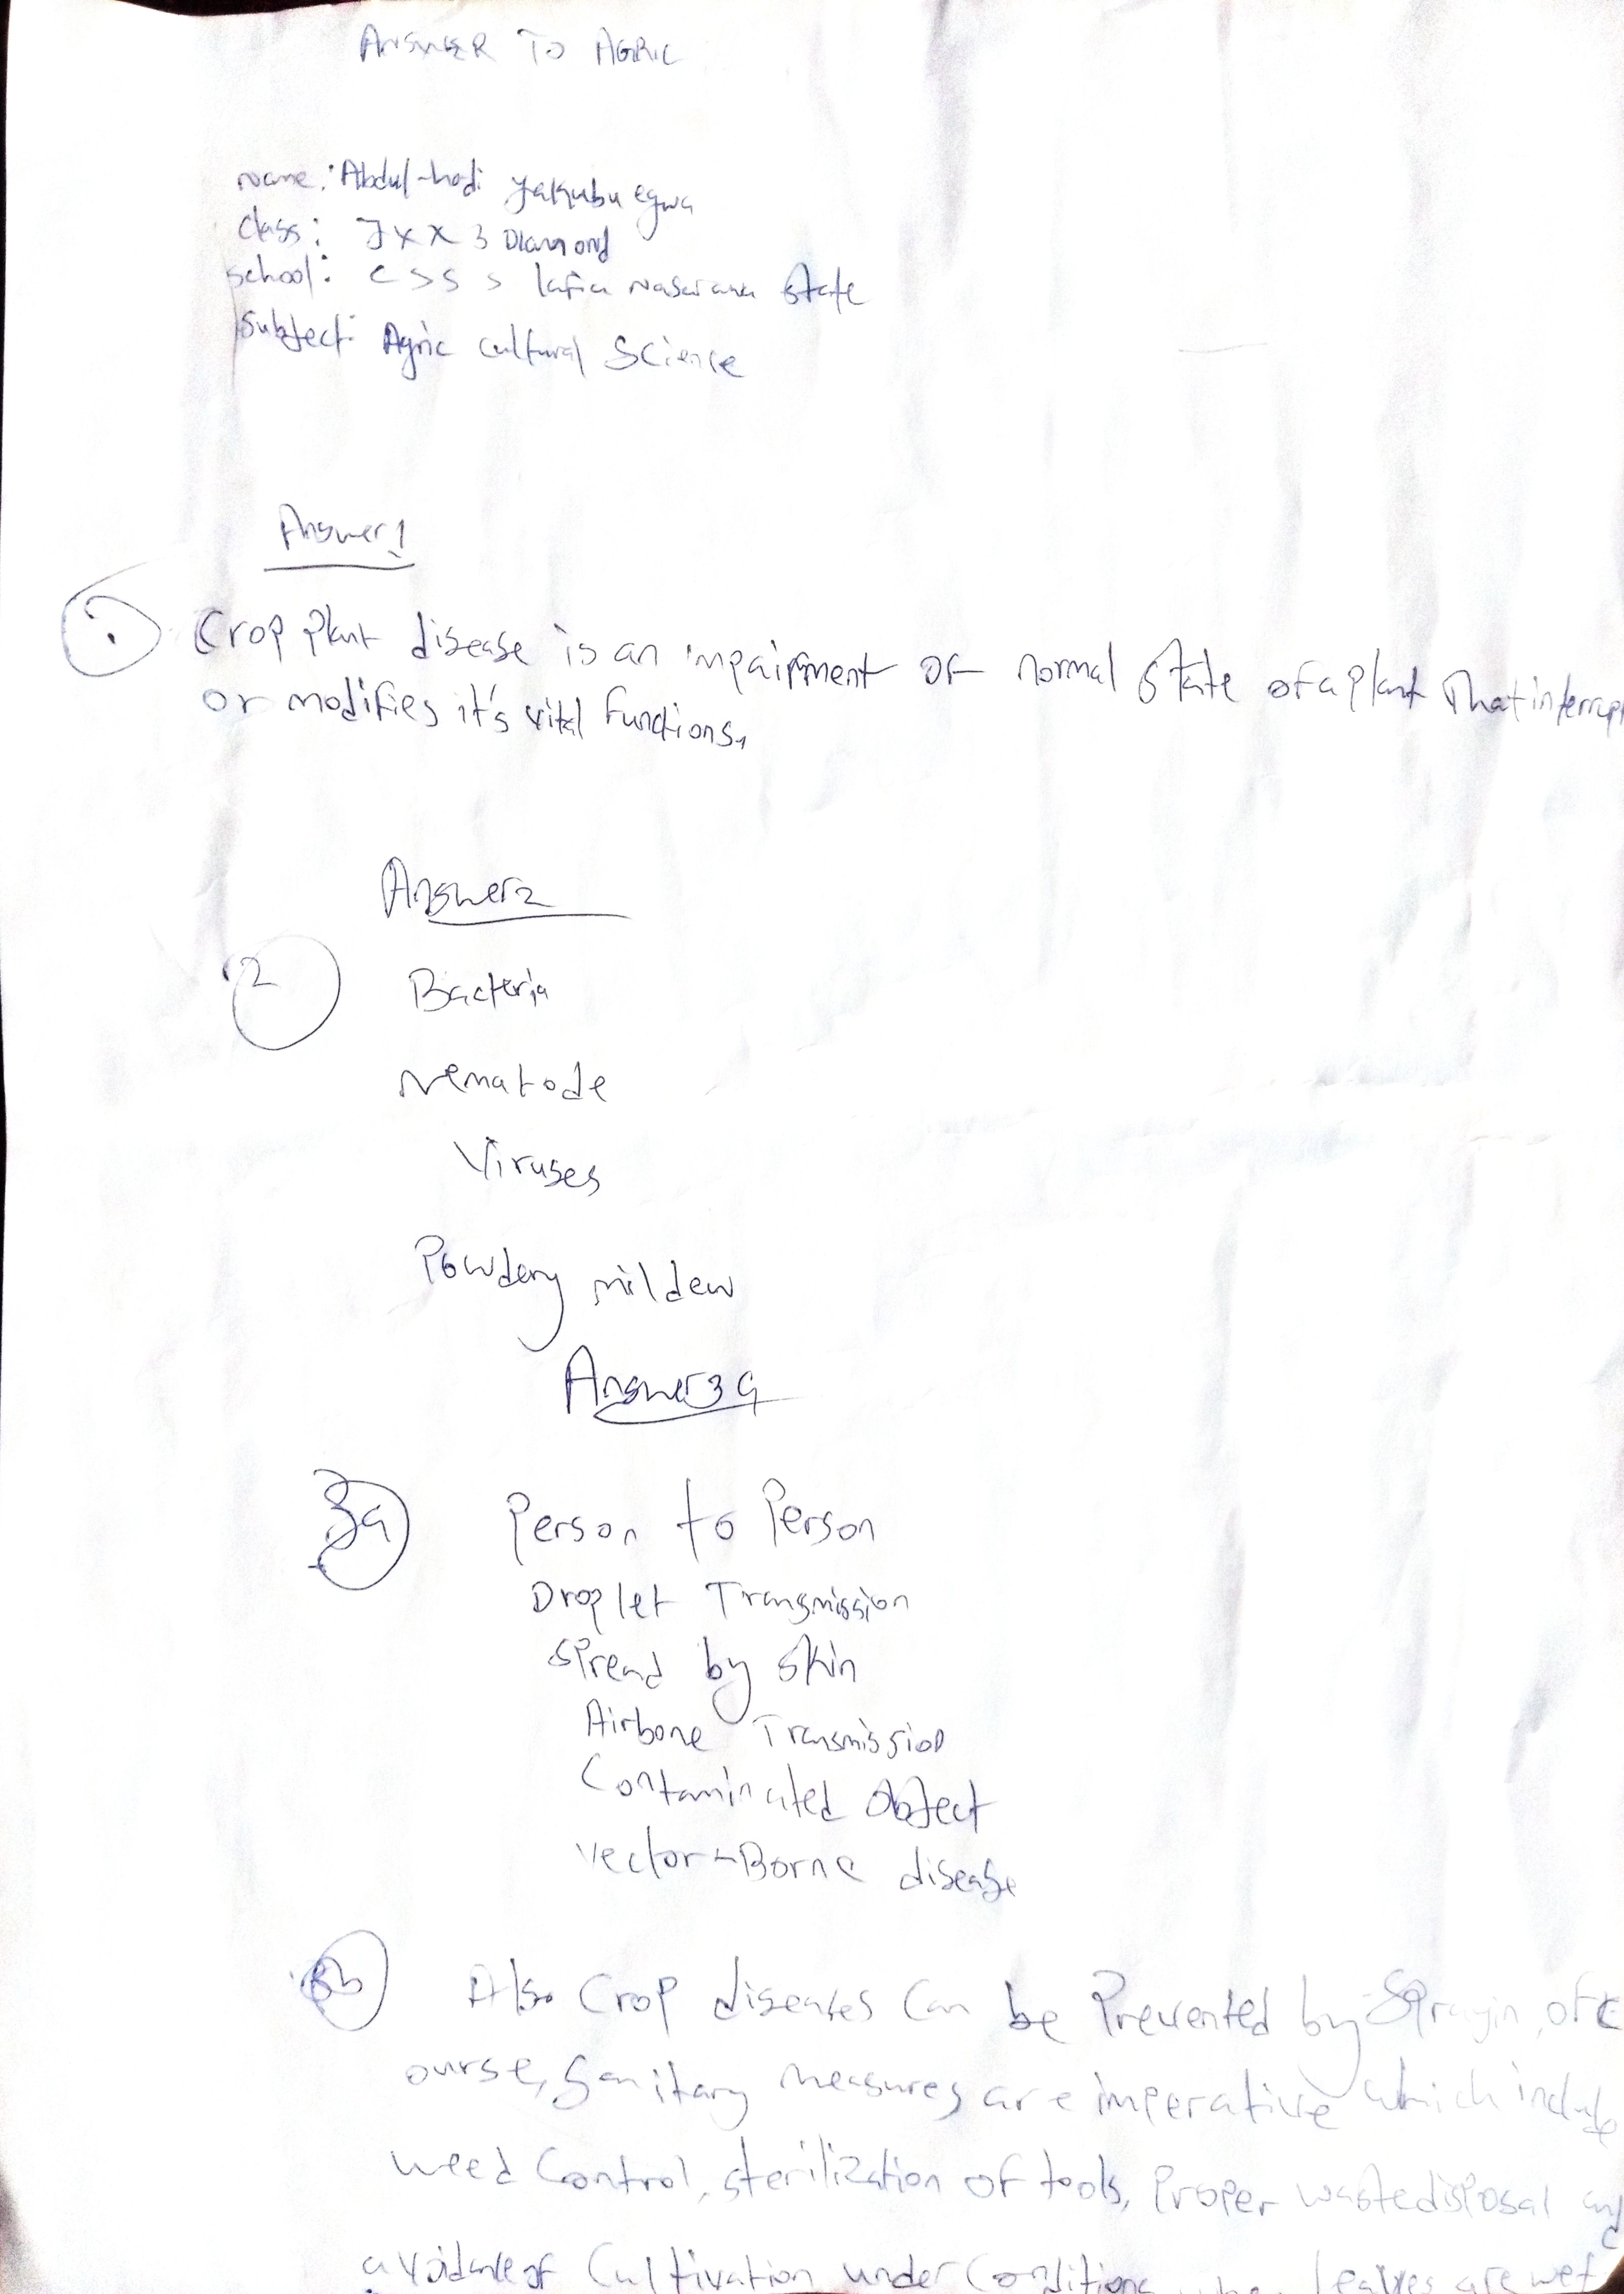 ANSWER TO AGRIC
Name: Abdul-hadi Yakubu egwa
Class: JXX 3 Diamond
School: CSSS lafia Nasarawa State
Subject: Agric cultural Science
Answer 1
1. Crop plant disease is an impairment of normal State of a plant That interrup
or modifies it's vital functions.
Answer 2
2 Bacteria
Nematode
Viruses
Powdery mildew
Answer 3a
3a Person to Person
Droplet Transmission
Spread by Skin
Airbone Transmission
Contaminated Object
Vector-Borne disease
3b Also Crop diseases Can be Prevented by Sprayin, of c
ourse, Sanitary measures are imperative which include
weed Control, sterilization of tools, Proper waste disposal and
avoidance of Cultivation under Conditions when leaves are wet